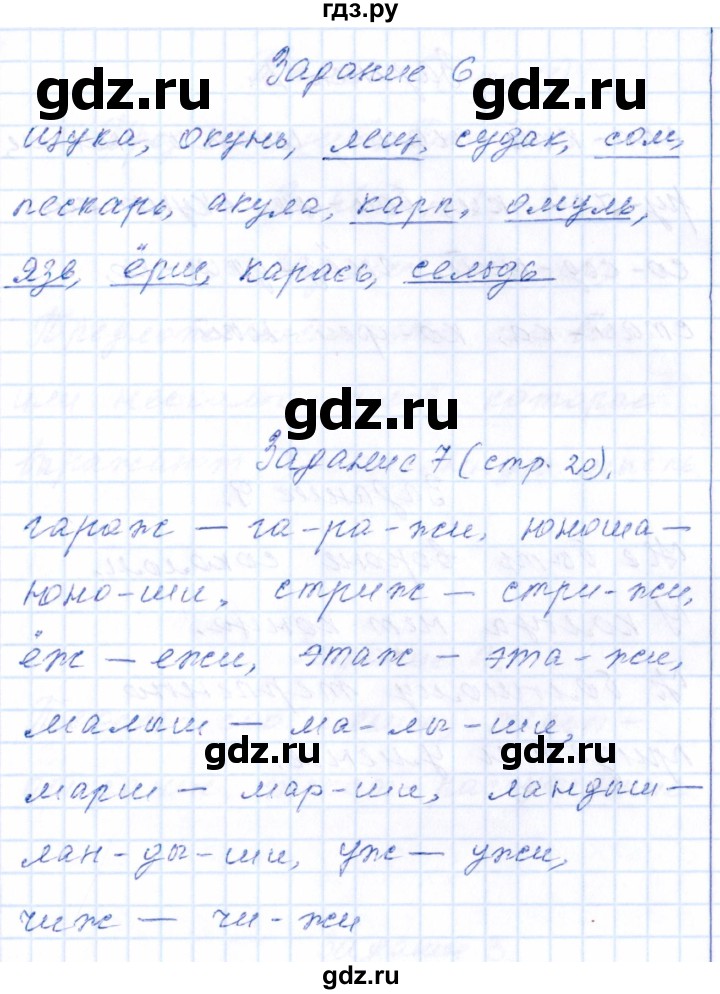 гдз.ру
Задание 6
gdz.ru gdz.ru
щука, окунь, лещ, судак, сом,
пескарь, акула, карп, омуль,
язь, ёрш, карась, сельдь
gdz.ru
Задание 7 (стр. 20).
гараж — га-ра-жи, юноша —
юно-ши, стриж — стри-жи,
ёж — ежи, этаж — эта-жи,
малыш — ма-лы-ши,
gdz.ru gdz.ru
марш — мар-ши, ландыш —
лан-ды-ши, уж — ужи,
чиж — чи-жи
gdz.ru